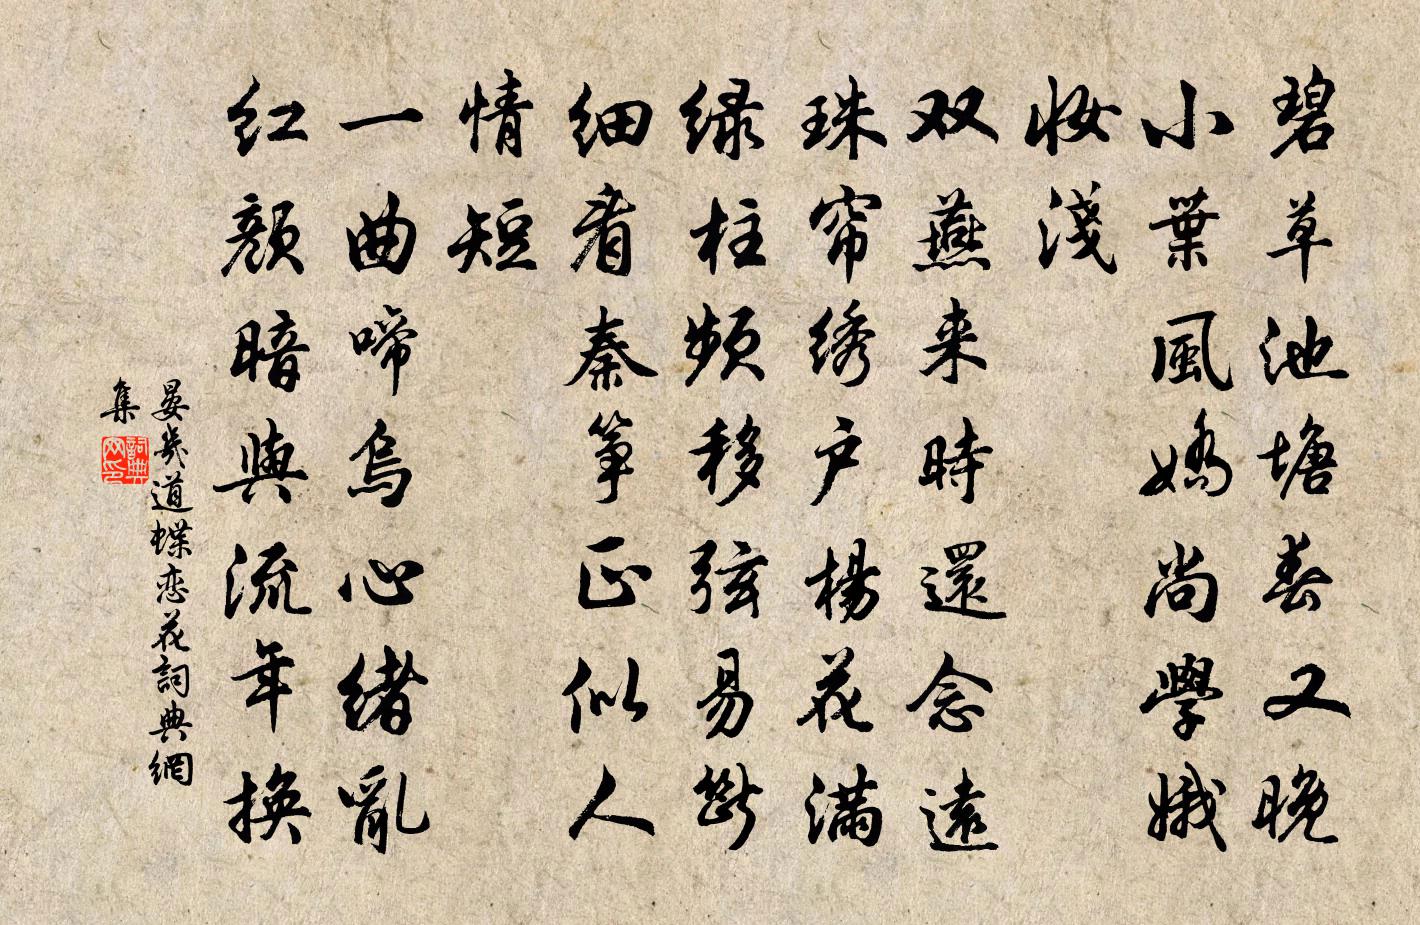 碧草池塘春又晚
小葉風嬌尚學娥
妝淺
双燕来時還念遠
珠帘绣户楊花满
緑柱頻移弦易斷
细看秦筝正似人
情短
一曲啼烏心緒亂
红顏暗與流年换
晏幾道蝶恋花詞典網
集
詞典
网印